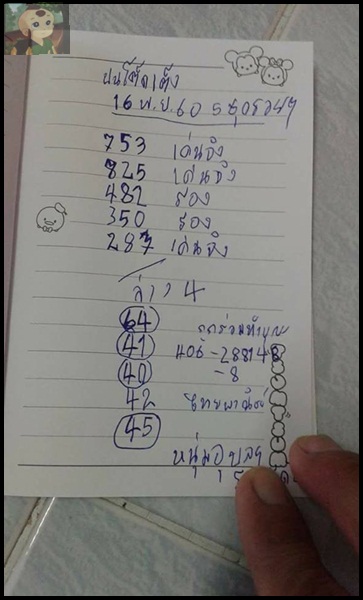 บนโต๊ดเต็ง
16 พ.ย. 60
753 เด่นจิง
825 เด่นจิง
482 รอง
350 รอง
287 เด่นจิง
ล่าง 4
64 ถูกร่วมทำบุญ
41 406-288148
40 -8
42 ไทยพาณิชย์
45
หนุ่มอุบลฯ